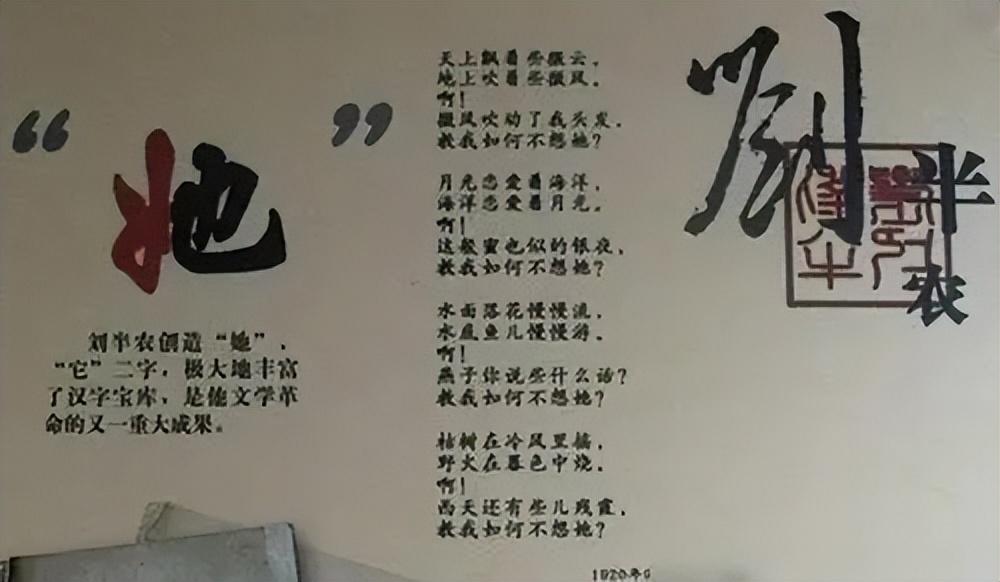 “她”
刘半农创造“她”、
“它”二字，极大地丰富
了汉字宝库，是他文学革
命的又一重大成果。
天上飘着些微云，
地上吹着些微风。
啊！
微风吹动了我头发，
教我如何不想她？
月光恋爱着海洋，
海洋恋爱着月光。
啊！
这般蜜也似的银夜，
教我如何不想她？
水面落花慢慢流，
水底鱼儿慢慢游。
啊！
燕子你说些什么话？
教我如何不想她？
枯树在冷风里摇，
野火在暮色中烧。
啊！
西天还有些儿残霞，
教我如何不想她？
1920年9
劉半农